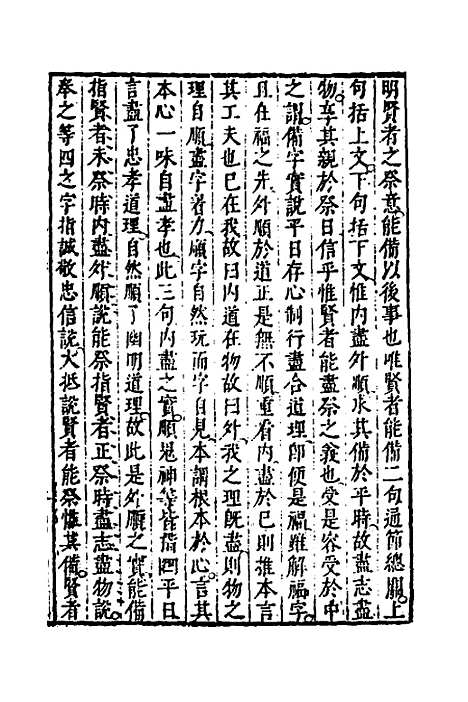 明賢者之祭意能備以後事也唯賢者能備二句通節總關上
句括上文下句括下文惟內盡外順求其備於平時故盡志盡
物享其親於祭日信乎惟賢者能盡祭之義也受是容受於中
之謂備字實說平日存心制行盡合道理卽便是福雖解福字
且在福之先外順於道正是無不順重看內盡於己則推本言
其工夫也已在我故曰內道在物故曰外我之理旣盡則物之
理自順盡字著力順字自然玩而字自見本謂根本於心言其
本心一味自盡孝也此三句內盡之實順鬼神等皆指四平日
言盡了忠孝道理自然順了幽明道理故此是外順之實能備
指賢者未祭時內盡外順說能祭指賢者正祭時盡志盡物說
奉之等四之字指誠敬忠信說大抵說賢者能祭惟其備賢者